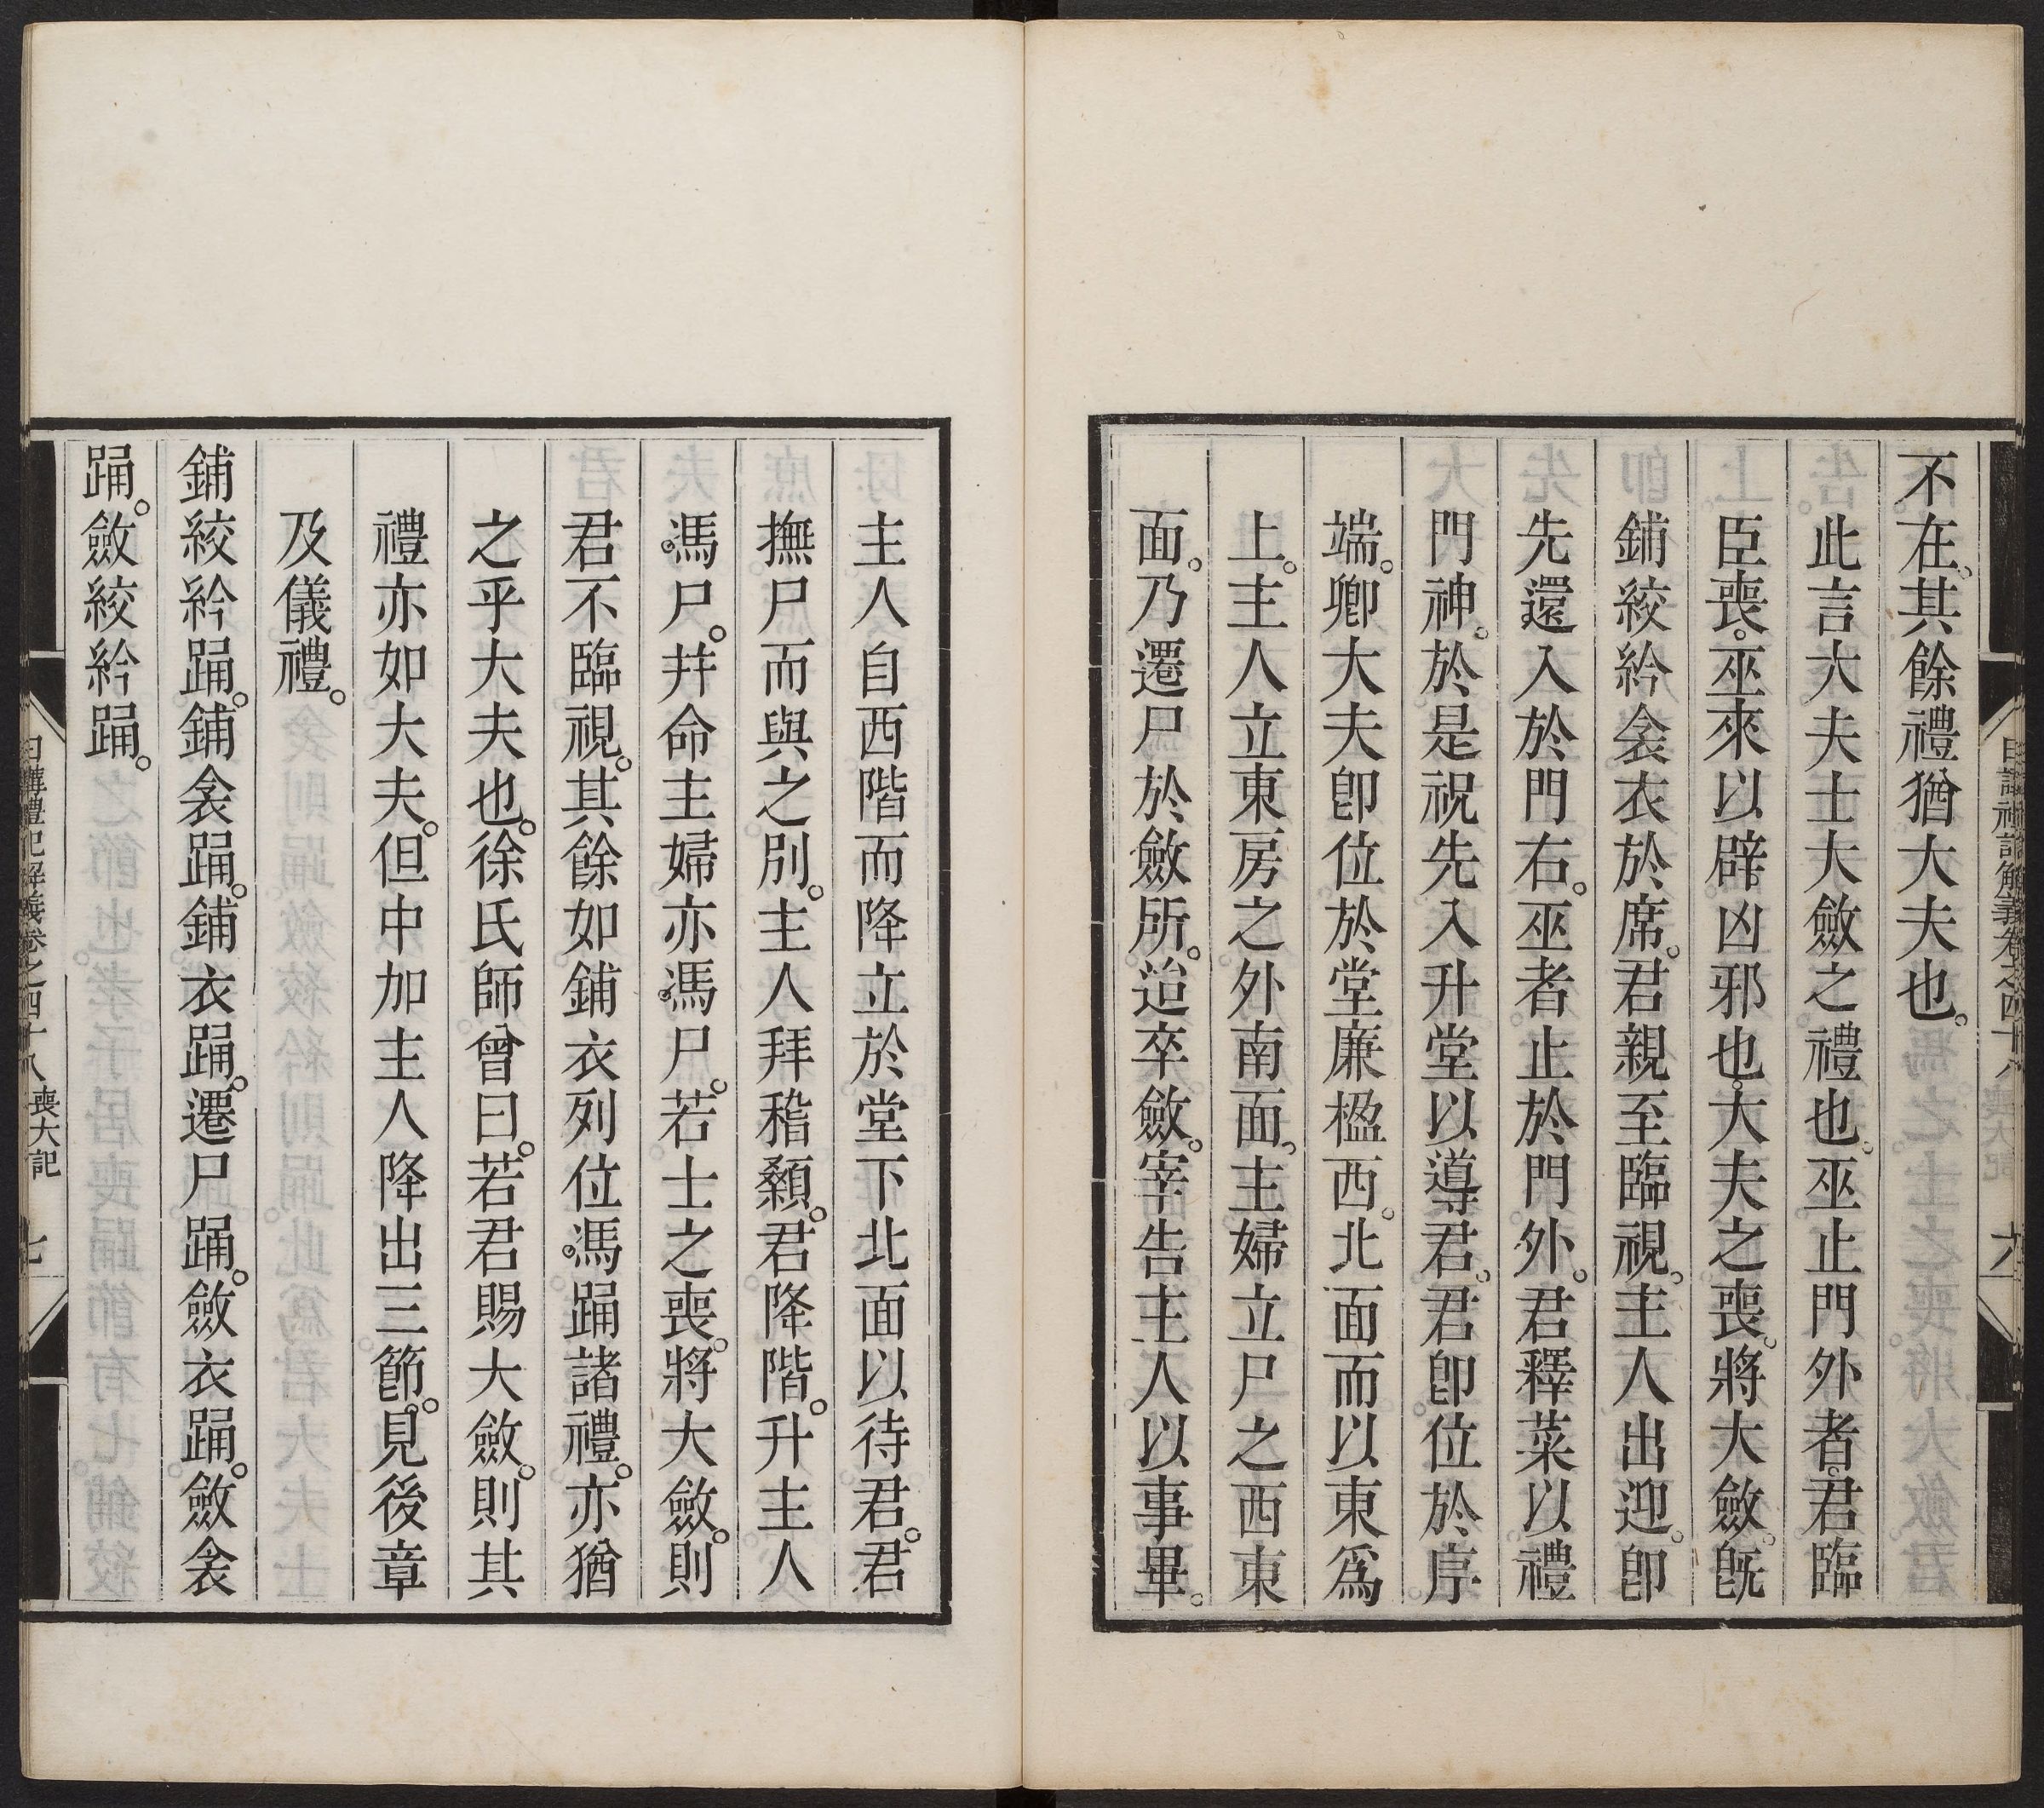 日講禮記解義卷之四十八 喪大記 六
不在。其餘禮猶大夫也。
此言大夫士大斂之禮也。巫止門外者。君臨
臣喪。巫來以辟凶邪也。大夫之喪。將大斂。旣
鋪絞紟衾衣於席。君親至臨視。主人出迎。卽
先還入於門右。巫者止於門外。君釋菜以禮
門神。於是祝先入升堂以導君。君卽位於序
端。卿大夫卽位於堂廉楹西。北面而以東爲
上。主人立東房之外南面。主婦立尸之西東
面。乃遷尸於斂所。迨卒斂。宰告主人以事畢。
主人自西階而降立於堂下北面以待君。君
撫尸而與之別。主人拜稽顙。君降階。升主人
馮尸。幷命主婦亦馮尸。若士之喪。將大斂。則
君不臨視。其餘如鋪衣列位馮踊諸禮。亦猶
之乎大夫也。徐氏師曾曰。若君賜大斂。則其
禮亦如大夫。但中加主人降出三節。見後章
及儀禮。
鋪絞紟踊。鋪衾踊。鋪衣踊。遷尸踊。斂衣踊。斂衾
踊。斂絞紟踊。
日講禮記解義卷之四十八 喪大記 七